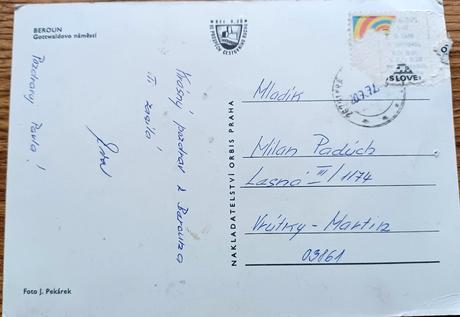 BEROUN
Gottwaldovo náměstí
Pozdravy Pavla!
Krásný pozdrav z Berouna
Ti zasílá
NAKLADATELSTVÍ ORBIS PRAHA
Mladík
Milan Padúch
Lesná III/1174
Vrútky - Martin
03861
Foto J. Pekárek